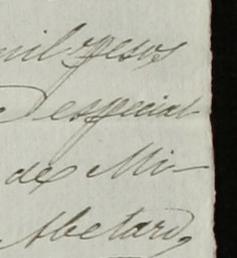 mil pesos
especial
de Mi-
Abelardo